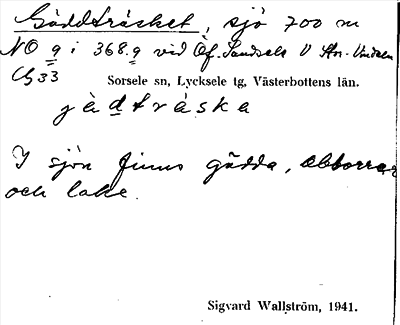 Gäddträsket, sjö 700 m
NO g i 368.9 vid Öf. Sandsele V Stor-Vindeln
Cg 33 Sorsele sn, Lycksele tg, Västerbottens län.
jädtráska
I sjön finns gädda, abborrar
och lake.
Sigvard Wallström, 1941.